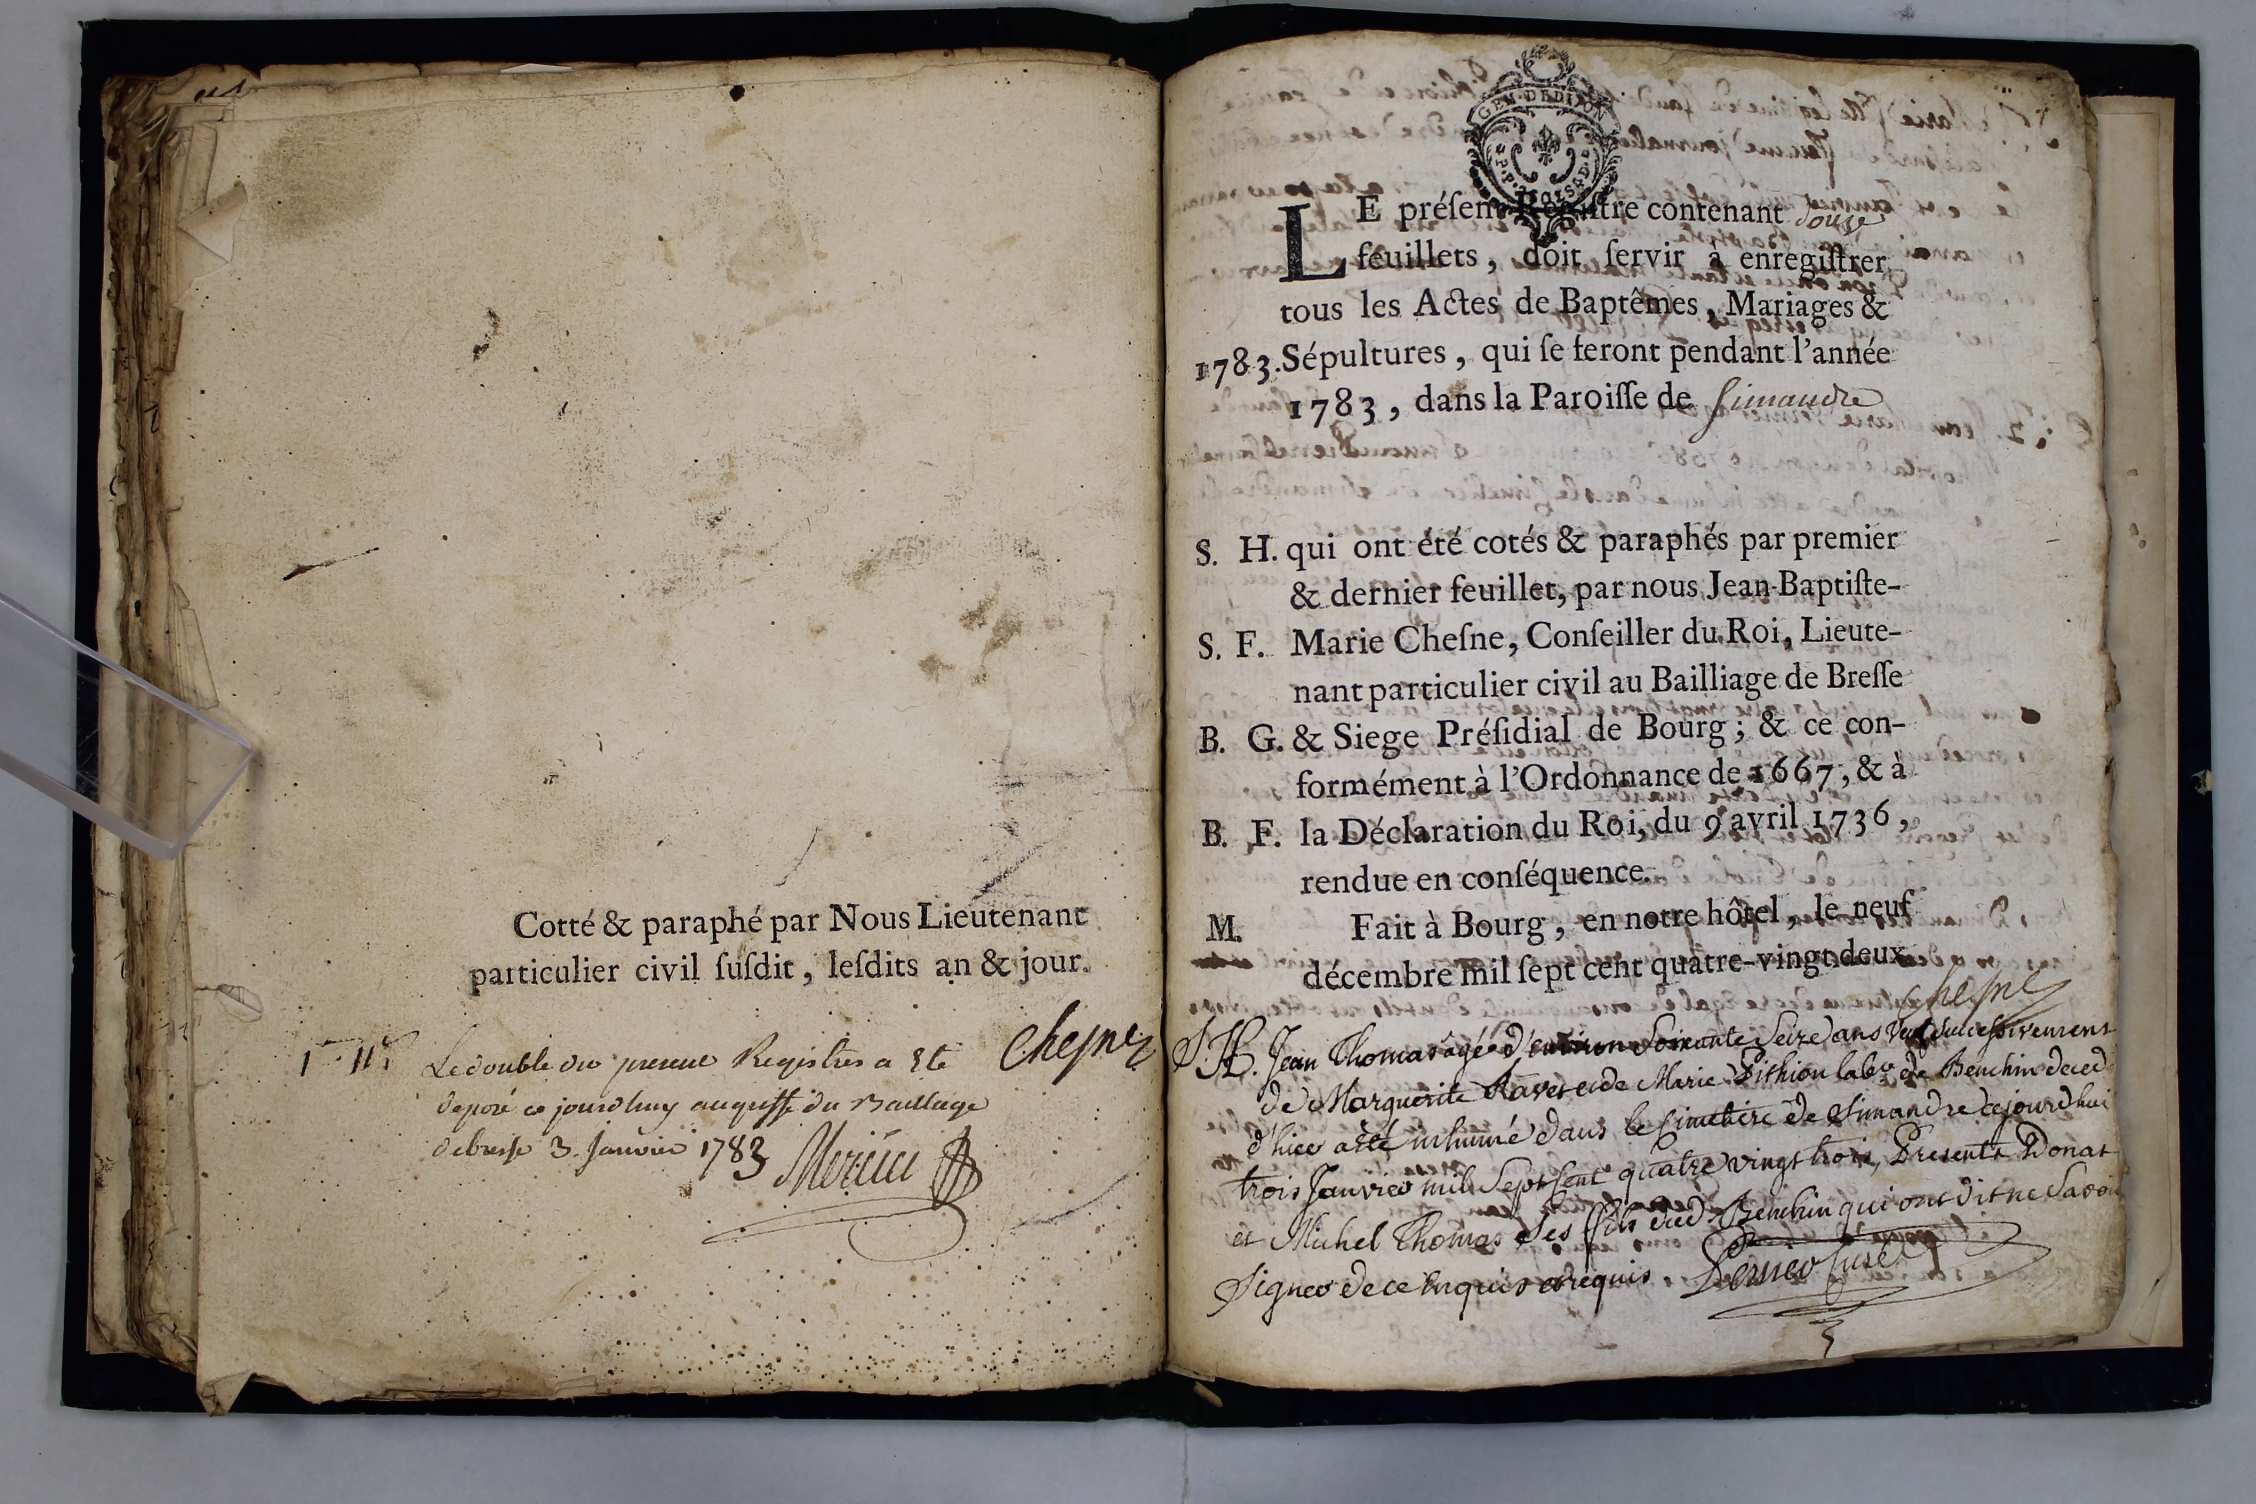 Cotté & paraphé par Nous Lieutenant
particulier civil ſuſdit, leſdits an & jour.
Chesne
Le double du present Registres a Eté
deposé ce jourdhuy au greffe du Bailliage
de bresse 3. Janvier 1783
GEN. DE DIJON
LE préſent Regiſtre contenant douze
feuillets, doit ſervir à enregiſtrer
tous les Actes de Baptêmes, Mariages &
1783. Sépultures, qui ſe feront pendant l'année
1783, dans la Paroiſſe de Simandre
S. H. qui ont été cotés & paraphés par premier
& dernier feuillet, par nous Jean-Baptiſte-
S. F. Marie Cheſne, Conſeiller du Roi, Lieute-
nant particulier civil au Bailliage de Breſſe
B. G. & Siege Préſidial de Bourg; & ce con-
formément à l'Ordonnance de 1667, & à
B. F. la Déclaration du Roi, du 9 avril 1736,
rendue en conſéquence.
M. Fait à Bourg, en notre hôtel, le neuf
décembre mil ſept cent quatre-vingt-deux.
Chesne
S. H. Jean Thomas agé d'environ Soixante Seize ans Veuf successivement
de Marguerite Ravet et de Marie Pithiou labr de Benchin deced
d'hier a été inhumé dans le Cimetiere de Simandre cejourdhui
trois Janvier mil Sept Cent quatre vingt trois, Presents Donat
et Michel Thomas Ses fils dud. Benchin qui ont dit ne Savoir
Signer de ce Enquis et requis. Curé